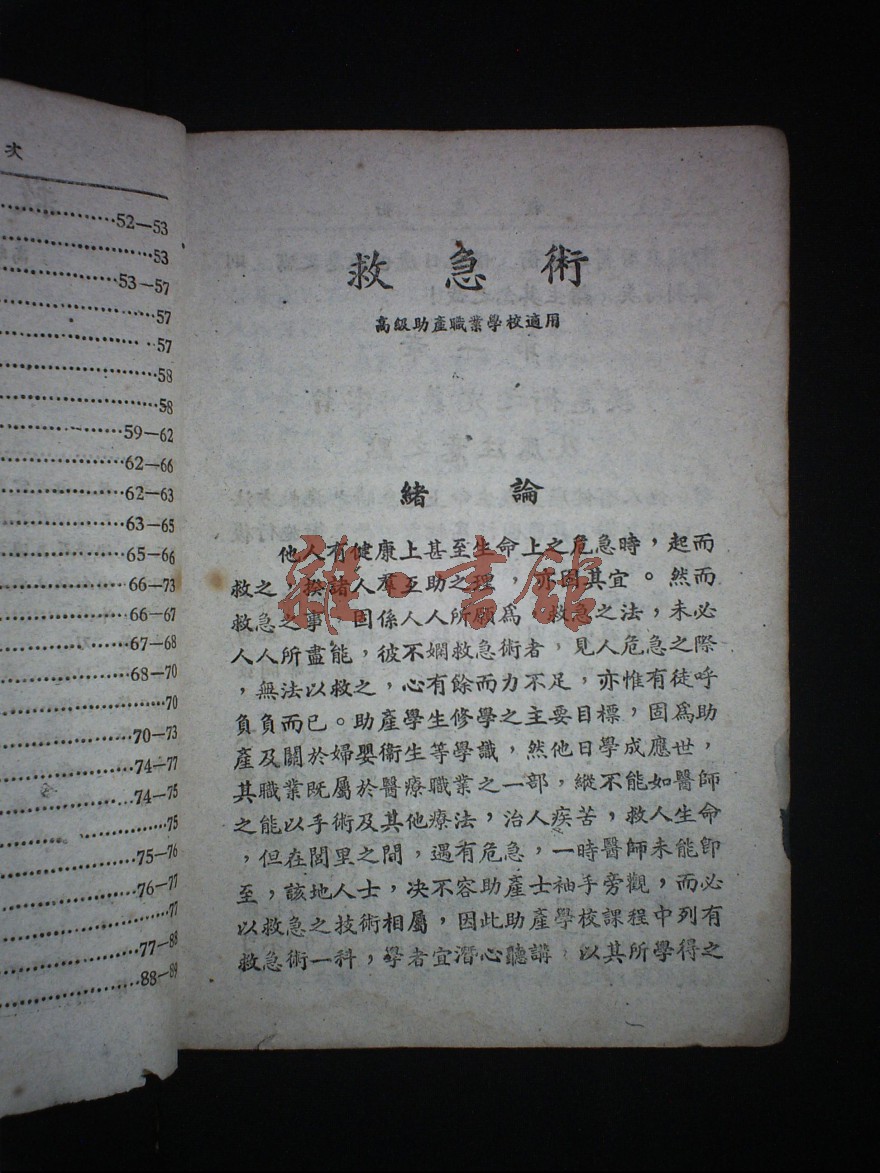 次
52—53
53
53—57
57
57
58
58
59—62
62—66
62—63
63—65
65—66
66—73
66—67
67—68
68—70
70
70—73
74—77
74—75
75
75—76
76—77
77
77—88
88—89
救急術
高級助產職業學校適用
緒論
他人有健康上甚至生命上之危急時，起而
救之，揆諸人羣互助之理，亦固其宜。然而
救急之事，固係人人所願爲，救急之法，未必
人人所盡能，彼不嫻救急術者，見人危急之際
，無法以救之，心有餘而力不足，亦惟有徒呼
負負而已。助產學生修學之主要目標，固爲助
產及關於婦嬰衞生等學識，然他日學成應世，
其職業既屬於醫療職業之一部，縱不能如醫師
之能以手術及其他療法，治人疾苦，救人生命
，但在閭里之間，遇有危急，一時醫師未能卽
至，該地人士，决不容助產士袖手旁觀，而必
以救急之技術相屬，因此助產學校課程中列有
救急術一科，學者宜潛心聽講，以其所學得之
雜·書館